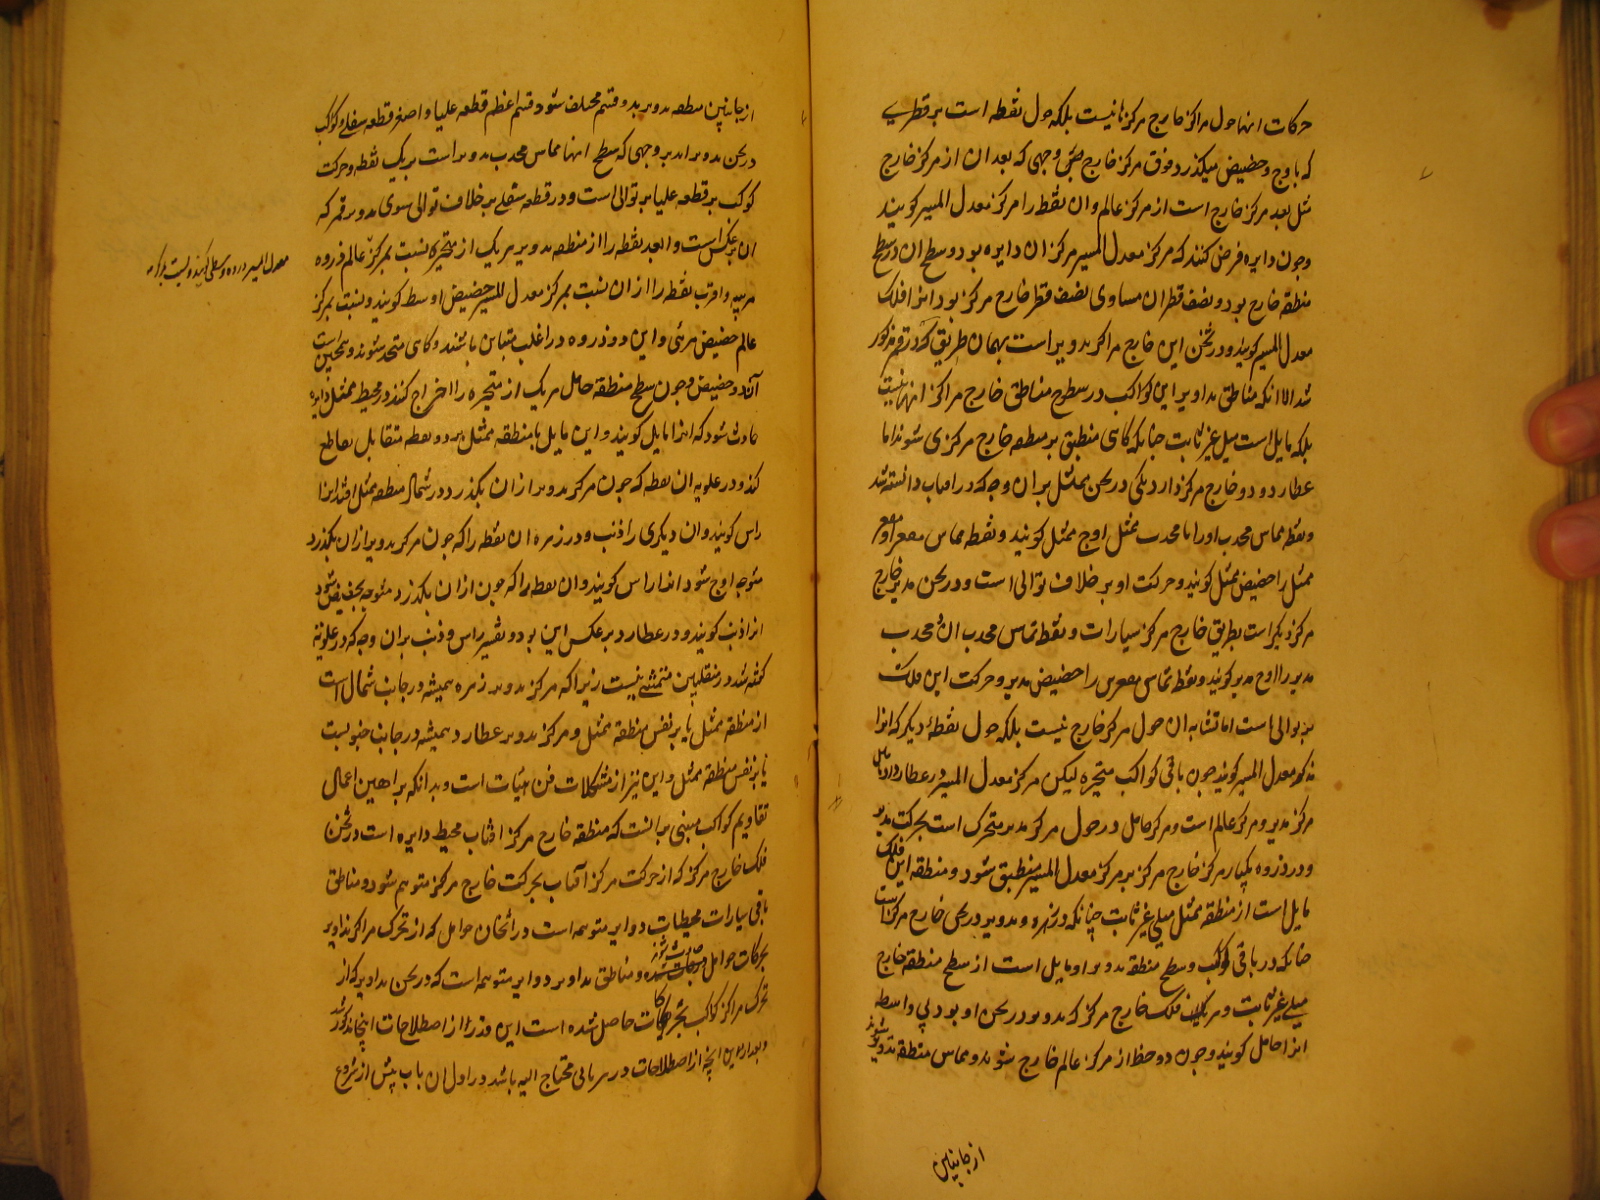 حرکات انها حول مراکز خارج مرکزها نیست بلکه حول نقطه است بر قطری
که باوج و حضیض میکذرد فوق مرکز خارج وجهی که بعد ان از مرکز خارج
مثل بعد مرکز خارج است از مرکز عالم وان نقطه را مرکز معدل المسیر کویند
وچون دایره فرض کنند که مرکز معدل المسیر مرکز ان دایره بود و سطح ان در سطح
منطقه خارج بود و نصف قطر ان مساوی نصف قطر خارج مرکز بود انرا فلک
معدل المسیر کویند و در ثخن این خارج مراکز تدویر است بهمان طریق که در قمر مذکور
شد الا انکه مناطق تداویر این کواکب در سطوح مناطق خارج مراکز انها نیست
بلکه مایل است میل غیر ثابت چنانکه کاهی منطبق بر منطقه خارج مرکز می شوند اما
عطارد دو خارج مرکز دارد یکی در ثخن ممثل بران وجه که در افتاب دانسته شد
ونقطه مماس محدب اورا با محدب ممثل اوج ممثل کویند و نقطه مماس مقعر او مقعر
ممثل را حضیض ممثل کویند و حرکت او بر خلاف توالی است و در ثخن مدیر خارج
مرکز دیکر است بطریق خارج مرکز سیارات و نقطه تماس محدب ان و محدب
مدیر را اوج مدیر کویند و نقطه تماس مقعرین را حضیض مدیر و حرکت این فلک
بر توالی است اما تشابه ان حول مرکز خارج نیست بلکه حول نقطه دیکر که انرا
مرکز معدل المسیر کویند چون باقی کواکب متحیره لیکن مرکز معدل المسیر در عطارد مابین
مرکز مدیر و مرکز عالم است و مرکز حامل در حول مرکز مدیر متحرک است بحرکت مدیر
و در دوره یکبار مرکز خارج مرکز بر مرکز معدل المسیر منطبق شود و منطقه این فلک
مایل است از منطقه ممثل میلی غیر ثابت چنانکه در زهره و تدویر در ثخن خارج مرکز است
چنانکه در باقی کواکب و سطح منطقه تدویر او مایل است از سطح منطقه خارج
میلی غیر ثابت و هر فلک خارج مرکز که تدویر در ثخن او بود بی واسطه
انرا حامل کویند و چون دو خط از مرکز عالم خارج شوند و مماس منطقه تدویر شوند
از جانبین
از جانبین منطقه تدویر بدو قسم مختلف شود قسم اعظم قطعه علیا و اصغر قطعه سفلی و کوکب
در ثخن تدویر اند بر وجهی که سطح انها مماس محدب تدویر است بر یک نقطه و حرکت
کوکب بر قطعه علیا بر توالی است و در قطعه سفلی بر خلاف توالی سوی تدویر قمر که
ان بر عکس است و ابعد نقطه را از منطقه تدویر هر یک از متحیره نسبت بمرکز عالم ذروه
مرییه و اقرب نقطه را از ان نسبت بمرکز معدل المسیر حضیض اوسط کویند و نسبت بمرکز
عالم حضیض مرئی و این دو ذروه در اغلب متباین باشند و کاهی متحد شوند و همچنین است
دو حضیض و چون سطح منطقه حامل هر یک از متحیره را اخراج کنند در محیط ممثل دایره
حادث شود که انرا مایل کویند و این مایل با منطقه ممثل بر دو نقطه متقابل تقاطع
کند و در علویه ان نقطه که چون مرکز تدویر از ان بکذرد در شمال منطقه ممثل افتد انرا
راس کویند وان دیکری را ذنب و در زهره ان نقطه را که چون مرکز تدویر از ان بکذرد
متوجه اوج شود انرا راس کویند وان نقطه را که چون از ان بکذرد متوجه بحضیض شود
انرا ذنب کویند و در عطارد بر عکس این بود و تفسیر راس و ذنب بران وجه که در علویه
کفته شد در سفلیین متمشی نیست زیرا که مرکز تدویر زهره همیشه در جانب شمال است
از منطقه ممثل یا بر نفس منطقه ممثل و مرکز تدویر عطارد همیشه در جانب جنوبست
یا بر نفس منطقه ممثل و این نیز از مشکلات فن هیئات است و بدانکه براهین اعمال
تقاویم کواکب مبنی برانست که منطقه خارج مرکز افتاب محیط دایره است در ثخن
فلک خارج مرکز که از حرکت مرکز آفتاب بحرکت خارج مرکز متوهم شود و مناطق
باقی سیارات محیطات دوایر متوهمه است در اثخان حوامل که از تحرک مراکز تداویر
بحرکات حوامل شده و مناطق تداویر دوایر متوهمه است که در ثخن تداویر که از
تحرک مراکز کواکب بحرکات حاصل شده است این قدر را از اصطلاحات اینجا مذکور شد
و بعد ازین انچه از اصطلاحات در هر بابی محتاج الیه باشد در اول ان باب پیش از شروع